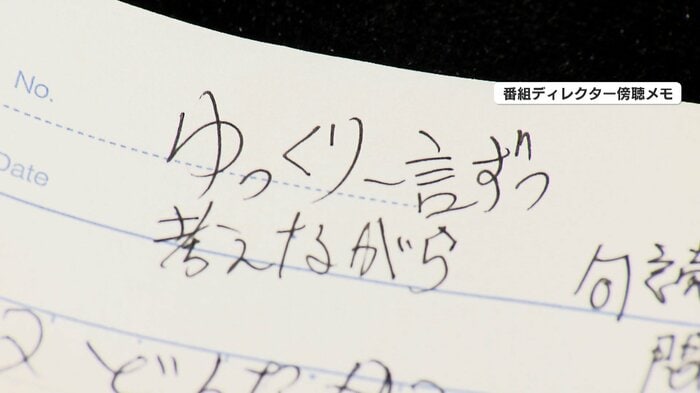 番組ディレクター傍聴メモ
No.
Date
ゆっくり一言ずつ
考えながら
句読